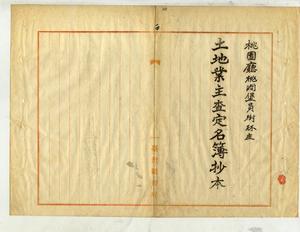 桃園廳桃澗堡員樹林庄
土地業主査定名簿抄本